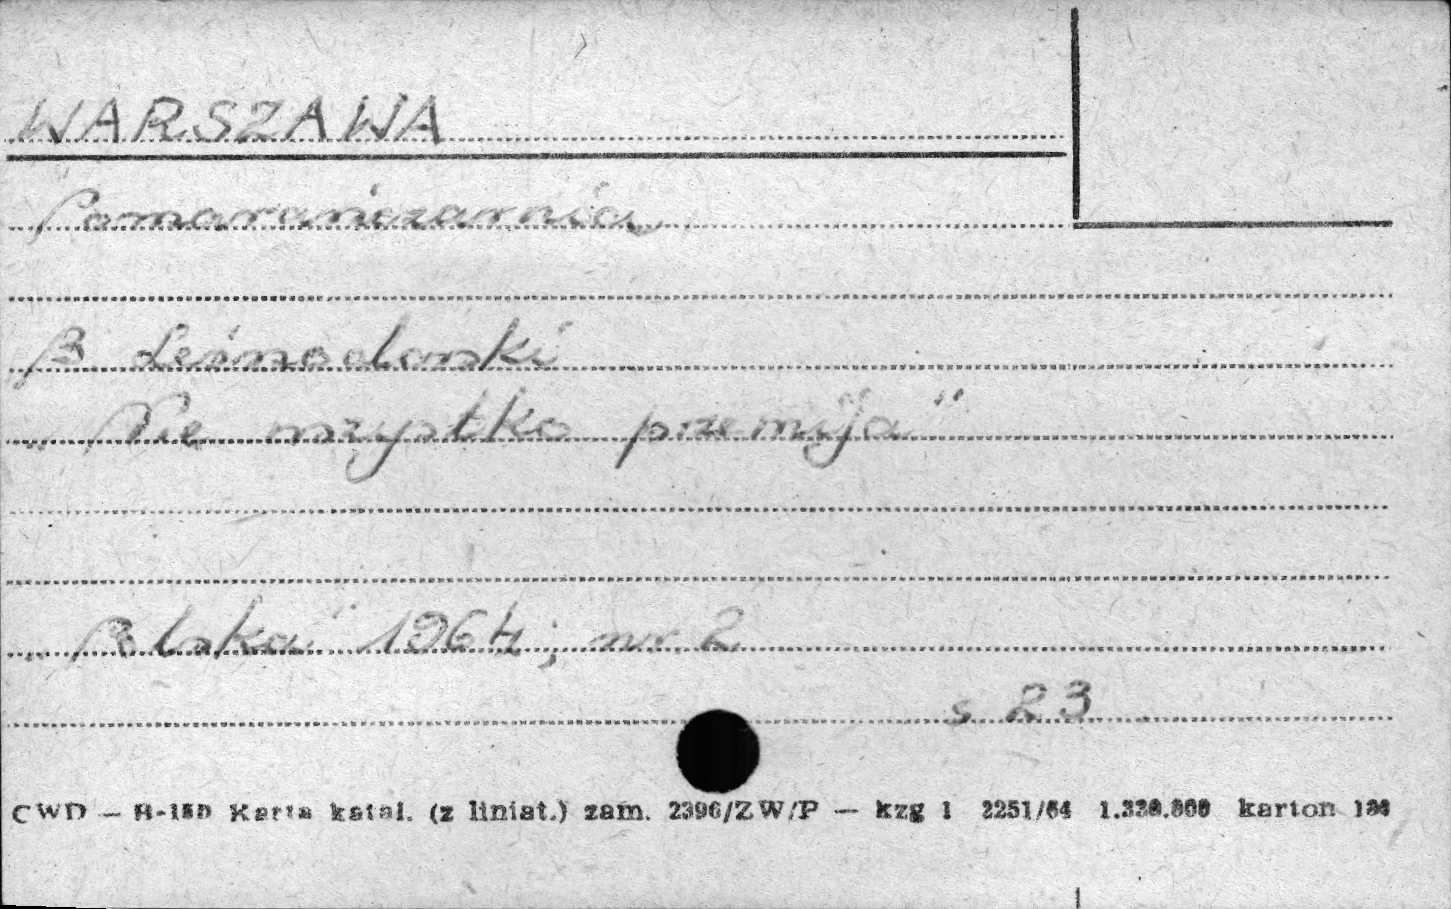 WARSZAWA
Pomarańczarnia
B Leśnodorski
„Nie wszystko przemija"
„Polska" 1964; nr. 2
s 23
CWD — H-150 Karta katal. (z liniat.) zam. 2396/ZW/P — kzg 1 2251/64 karton